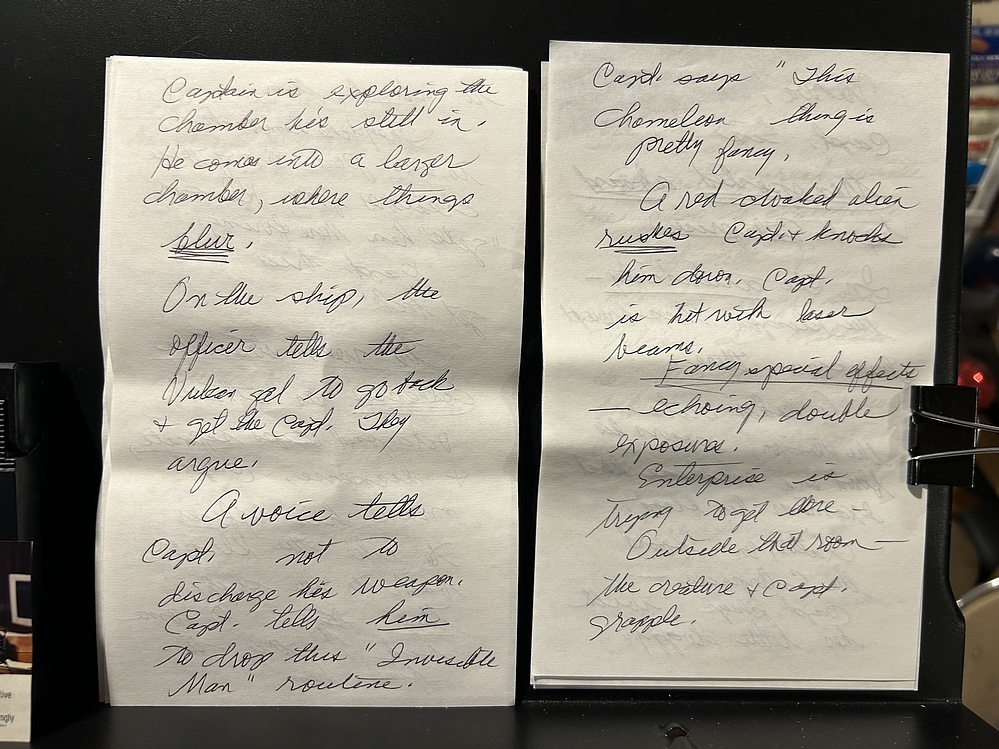 Captain is exploring the
chamber he's still in.
He comes into a larger
chamber, where things
blur.
On the ship, the
officer tells the
Vulcan gal to go back
+ get the Capt. They
argue.
A voice tells
Capt. not to
discharge his weapon.
Capt. tells him
to drop this "Invisible
Man" routine.
Capt. says "This
chameleon thing is
pretty fancy.
A red cloaked alien
rushes Capt. + knocks
him down. Capt.
is hit with laser
beams.
Fancy special effects
— echoing, double
exposures.
Enterprise is
trying to get there —
Outside that room —
the creature + Capt.
grapple.